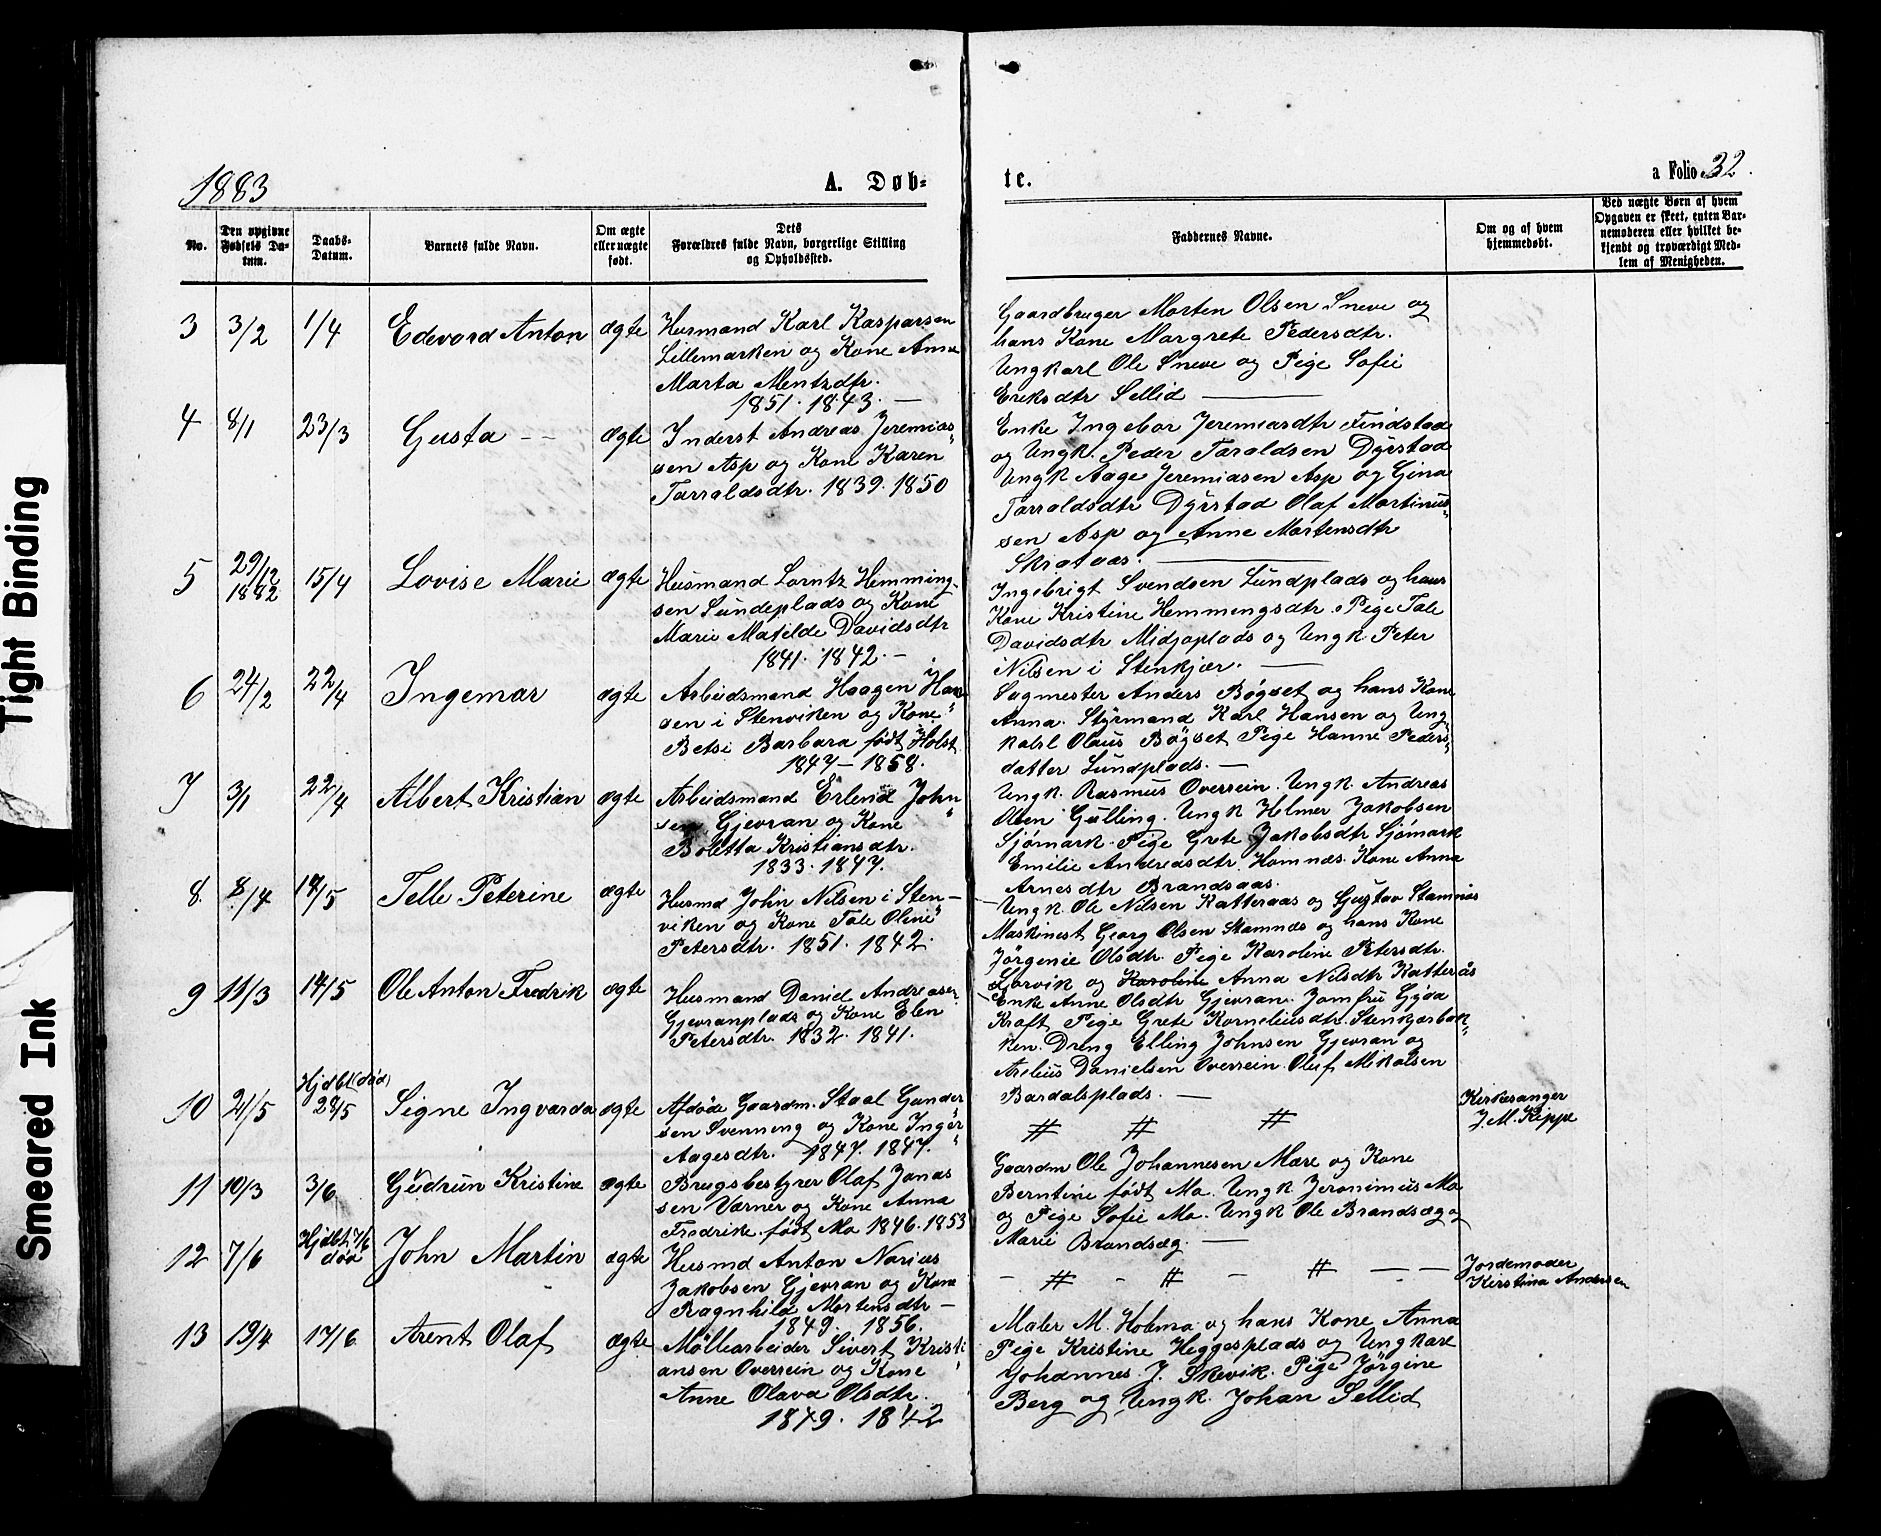 1883
A. Døb-
te.
a Folio 32.
No.
Den opgivne Fødsels Da-tum.
Daabs-Datum.
Barnets fulde Navn.
Om ægte eller uægte født.
Dets Forældres fulde Navn, borgerlige Stilling og Opholdssted.
Faddernes Navne.
Om og af hvem hjemmedøbt.
Ved uægte Børn af hvem Opgaven er skeet, enten Bar-nemoderen eller hvilket be-kjendt og troværdigt Med-lem af Menigheden.
3 3/2 1/4 Edevard Anton ægte
Husmand Karl Kasparsen
Lillemarken og Kone Anne
Marta Mentzdtr.
1851. 1843. —
Gaardbruger Morten Olsen Sneve og
hans Kone Margrete Pedersdtr.
Ungkarl Ole Sneve og Pige Sofie
Eriksdtr Sellid —
4 8/1 23/3 Gusta - - ægte
Inderst Andreas Jeremias-
sen Asp og Kone Karen
Tarraldsdtr. 1839. 1850
Enke Ingebor Jeremiasdtr Findstad
og Ungk. Peder Taraldsen Dyrstad
Ungk Aage Jeremiasen Asp og Gina
Tarraldsdtr Dyrstad Olaf Martinus-
sen Asp og Anne Martensdtr
Skrataas. —
5 29/12 1882 15/4 Lovise Marie ægte
Husmand Lorntz Hemming-
sen Sundeplads og Kone
Marie Matilde Davidsdtr
1841. 1842. —
Ingebrigt Svendsen Lundplads og hans
Kone Kristine Hemmingsdtr. Pige Tale
Davidsdtr Midjoplads og Ungk. Peter
Nilsen i Stenkjær. —
6 24/2 22/4 Ingemar ægte
Arbeidsmand Haagen Han-
sen i Stenviken og Kone
Betsi Barbara født Holst
1847 — 1858.
Sagmester Anders Bøgset og hans Kone
Anna. Styrmand Karl Hansen og Ung-
karl Olaus Bøgset Pige Hanne Peders-
datter Lundplads. —
7 3/1 22/4 Albert Kristian ægte
Arbeidsmand Erlend John-
sen Gjevran og Kone
Boletta Kristiansdtr.
1833. 1847.
Ungk. Rasmus Overrein. Ungk. Andreas
Olsen Gulling. Ungk Helmer Jakobsen
Sjømark. Pige Grete Jakobsdtr Sjømark
Emilie Andreasdtr. Hamnæs. Kone Anna
Arnesdtr Brandsaas.
8. 8/4 14/5 Telle Peterine ægte
Husmd John Nilsen i Sten-
viken og Kone Tale Oline
Petersdtr. 1851. 1842.
Ungk. Ole Nilsen Katteraas og Gustav Stamnæs
Maskinest Georg Olsen Stamnæs og hans Kone
Jørgenie Olsdtr. Pige Karoline Petersdtr.
Lorvik og Karoline Anna Nilsdtr Katterås
9 11/3 14/5 Ole Anton Fredrik ægte
Husmand Daniel Andreasen
Gjevranplads og Kone Elen
Petersdtr. 1832. 1841.
Enke Anne Olsdtr Gjevran. Jomfru Gyda
Kraft Pige Grete Korneliusdtr. Stenkjærbak-
ken. Dreng Elling Johnsen Gjevran og
Arelius Danielsen Overrein. Oluf Mikalsen
Bardalsplads. —
10 21/5 Hjdbt (død) 28/5 Signe Ingvarda ægte
Afdøde Gaardm. Staal Gunder-
sen Svenning og Kone Inger
Aagesdtr. 1847. 1847.
# # #
Kirkesanger
J. M. Kippe
11 10/3 3/6 Gudrun Kristine ægte
Brugsbestyrer Olaf Jonas-
sen Værner og Kone Anna
Fredrike født Mo 1846. 1853
Gaardm Ole Johannesen Mære og Kone
Berntine født Mo. Ungk Jeronimus Mo
og Pige Sofie Mo. Ungk Ole Brandsæg og
Marie Brandsæg. —
12 7/6 Hjdbt. 7/6 død John Martin ægte
Husmd Anton Narius
Jakobsen Gjevran og Kone
Ragnhild Mortensdtr —
1849. 1856.
- # - # - # - -
Jordemoder
Kirstina Andersen
13 19/4 17/6 Arent Olaf ægte
Møllearbeider Sivert Kristi-
ansen Overrein og Kone
Anne Olava Olsdtr.
1849. 1842
Maler M. Holmo og hans Kone Anna
Pige Kristine Heggesplads og Ungkarl
Johannes J. Skevik. Pige Jørgine
Berg og Ungk. Johan Sellid
Tight Binding
Smeared Ink